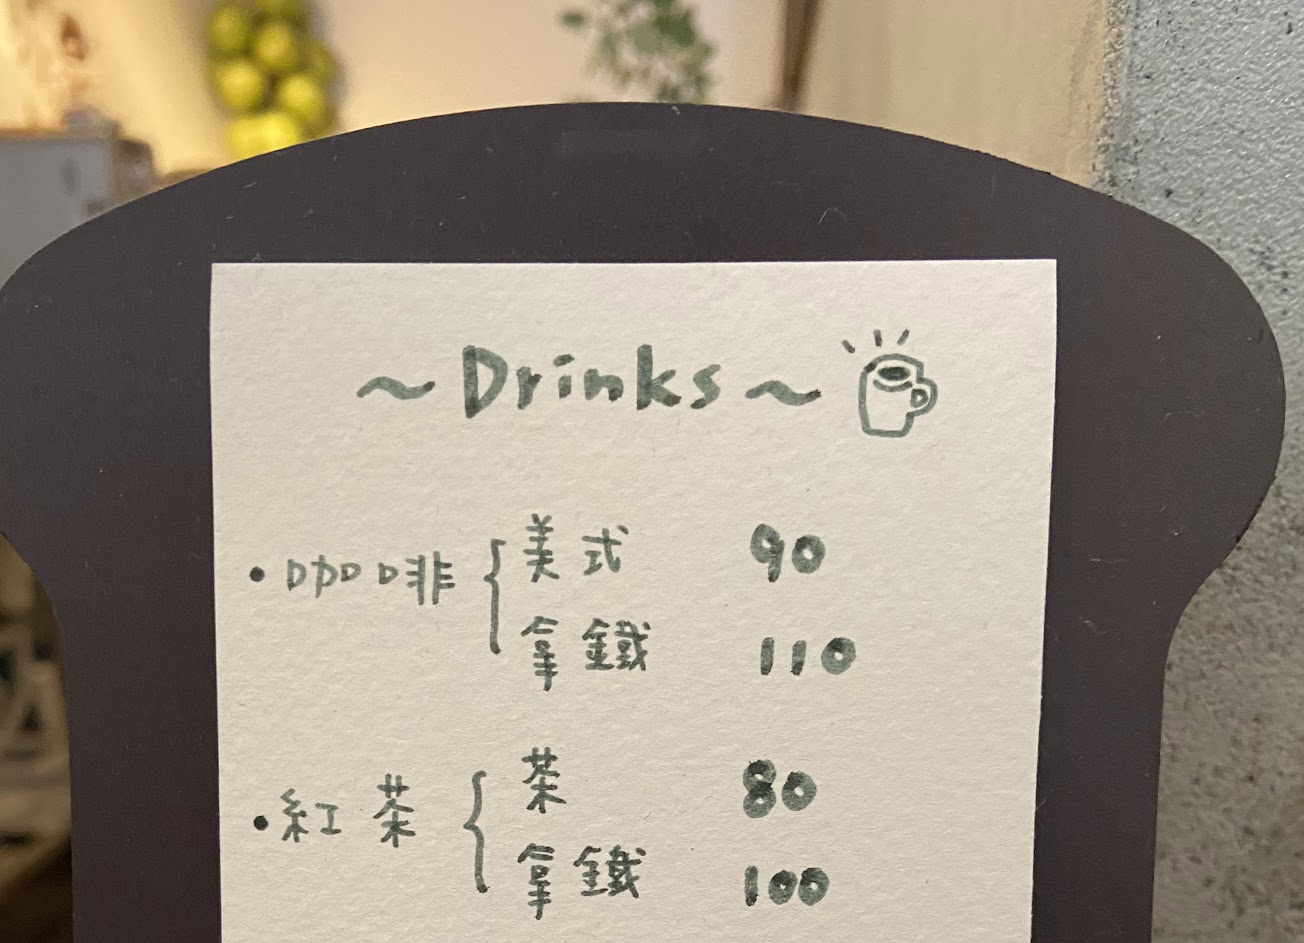 ~Drinks~
•咖啡{美式 90
拿鐵 110
•紅茶{茶 80
拿鐵 100